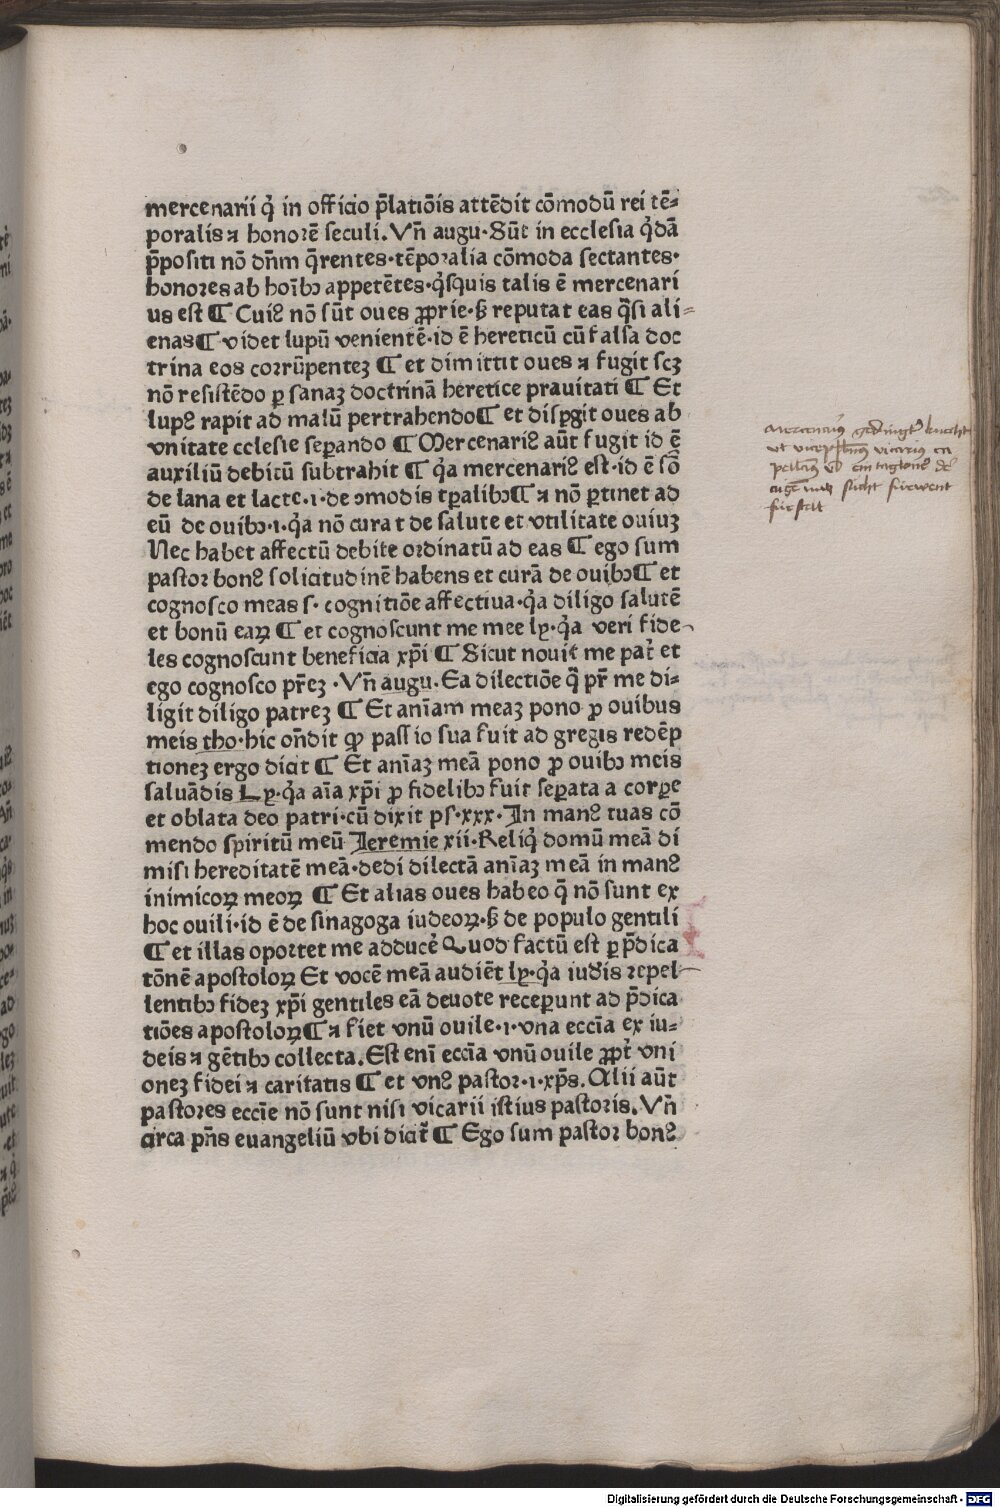 mercenarii q̇ in officio p̄latiōis attēdit cōmodū rei tē⸗
poralis ⁊ honorē seculi. Vn̄ augu· Sūt in ecclesia q̇dā
p̄positi nō dn̄m q̄rentes· tēporalia cōmoda sectantes·
honores ab hoībꝫ appetētes· q̇squis talis ē mercenari
us est ¶ Cuiꝰ nō sūt oues ꝓprie· ẞ reputat eas q̄si ali⸗
enas ¶ videt lupū venientē· id ē hereticū cū falsa doc
trina eos corrūpenteꝫ ¶ et dimittit oues ⁊ fugit scꝫ
nō resistēdo ꝑ sanaꝫ doctrinā heretice prauitati ¶ Et
lupꝰ rapit ad malū pertrahendo ¶ et dispgit oues ab
vnitate cclesie seꝑando ¶ Mercenariꝰ aūt fugit id ē
auxiliū debitū subtrahit ¶ q̇a mercenariꝰ est· id ē sō
de lana et lacte· i· de ꝯmodis tꝑalibꝫ ¶ ⁊ nō ꝑtinet ad
eū de ouibꝫ· i· q̇a nō curat de salute et vtilitate ouiuꝫ
Nec habet affectū debite ordinatū ad eas ¶ ego sum
pastor bonꝰ solicitudinē habens et curā de ouibꝫ ¶ et
cognosco meas s· cognitiōe affectiua· q̇a diligo salutē
et bonū eaꝝ ¶ et cognoscunt me mee ly· q̇a veri fide⸗
les cognoscunt beneficia xp̄i ¶ Sicut nouit me pat̄ et
ego cognosco pr̄eꝫ · Vn̄ augu. Ea dilectiōe q̄ pr̄ me di⸗
ligit diligo patreꝫ ¶ Et anīam meaꝫ pono ꝓ ouibus
meis tho· hic on̄dit ꝙ passio sua fuit ad gregis redēp
tioneꝫ ergo dicit ¶ Et anīaꝫ meā pono ꝓ ouibꝫ meis
saluādis Ly· q̇a aīa xp̄i ꝓ fidelibꝫ fuit seꝑata a corꝑe
et oblata deo patri· cū dixit ps· xxx· In manꝰ tuas cō
mendo spiritū meū Jeremie xii· Reliq̇ domū meā di
misi hereditatē meā· dedi dilectā anīaꝫ meā in manꝰ
inimicoꝝ meoꝝ ¶ Et alias oues habeo q̄ nō sunt ex
hoc ouili· id ē de sinagoga iudeoꝝ· ẞ de populo gentili
¶ et illas oportet me adducē Quod factū est ꝑ p̄dica
tōnē apostoloꝝ Et vocē meā audiēt ly· q̇a iud̄is repel⸗
lentibꝫ fideꝫ xp̄i gentiles eā deuote receꝑunt ad p̄dica
tiōes apostoloꝝ ¶ ⁊ fiet vnū ouile· i· vna ecc̄ia ex iu⸗
deis ⁊ gētibꝫ collecta. Est enī ecc̄ia vnū ouile ꝓpt̄ vni
oneꝫ fidei ⁊ caritatis ¶ et vnꝰ pastor· i· xp̄s. Alii aūt
pastores ecc̄ie nō sunt nisi vicarii istius pastoris. Vn̄
circa pn̄s euangeliū vbi dicit̄ ¶ Ego sum pastor bonꝰ
Digitalisierung gefördert durch die Deutsche Forschungsgemeinschaft - DFG